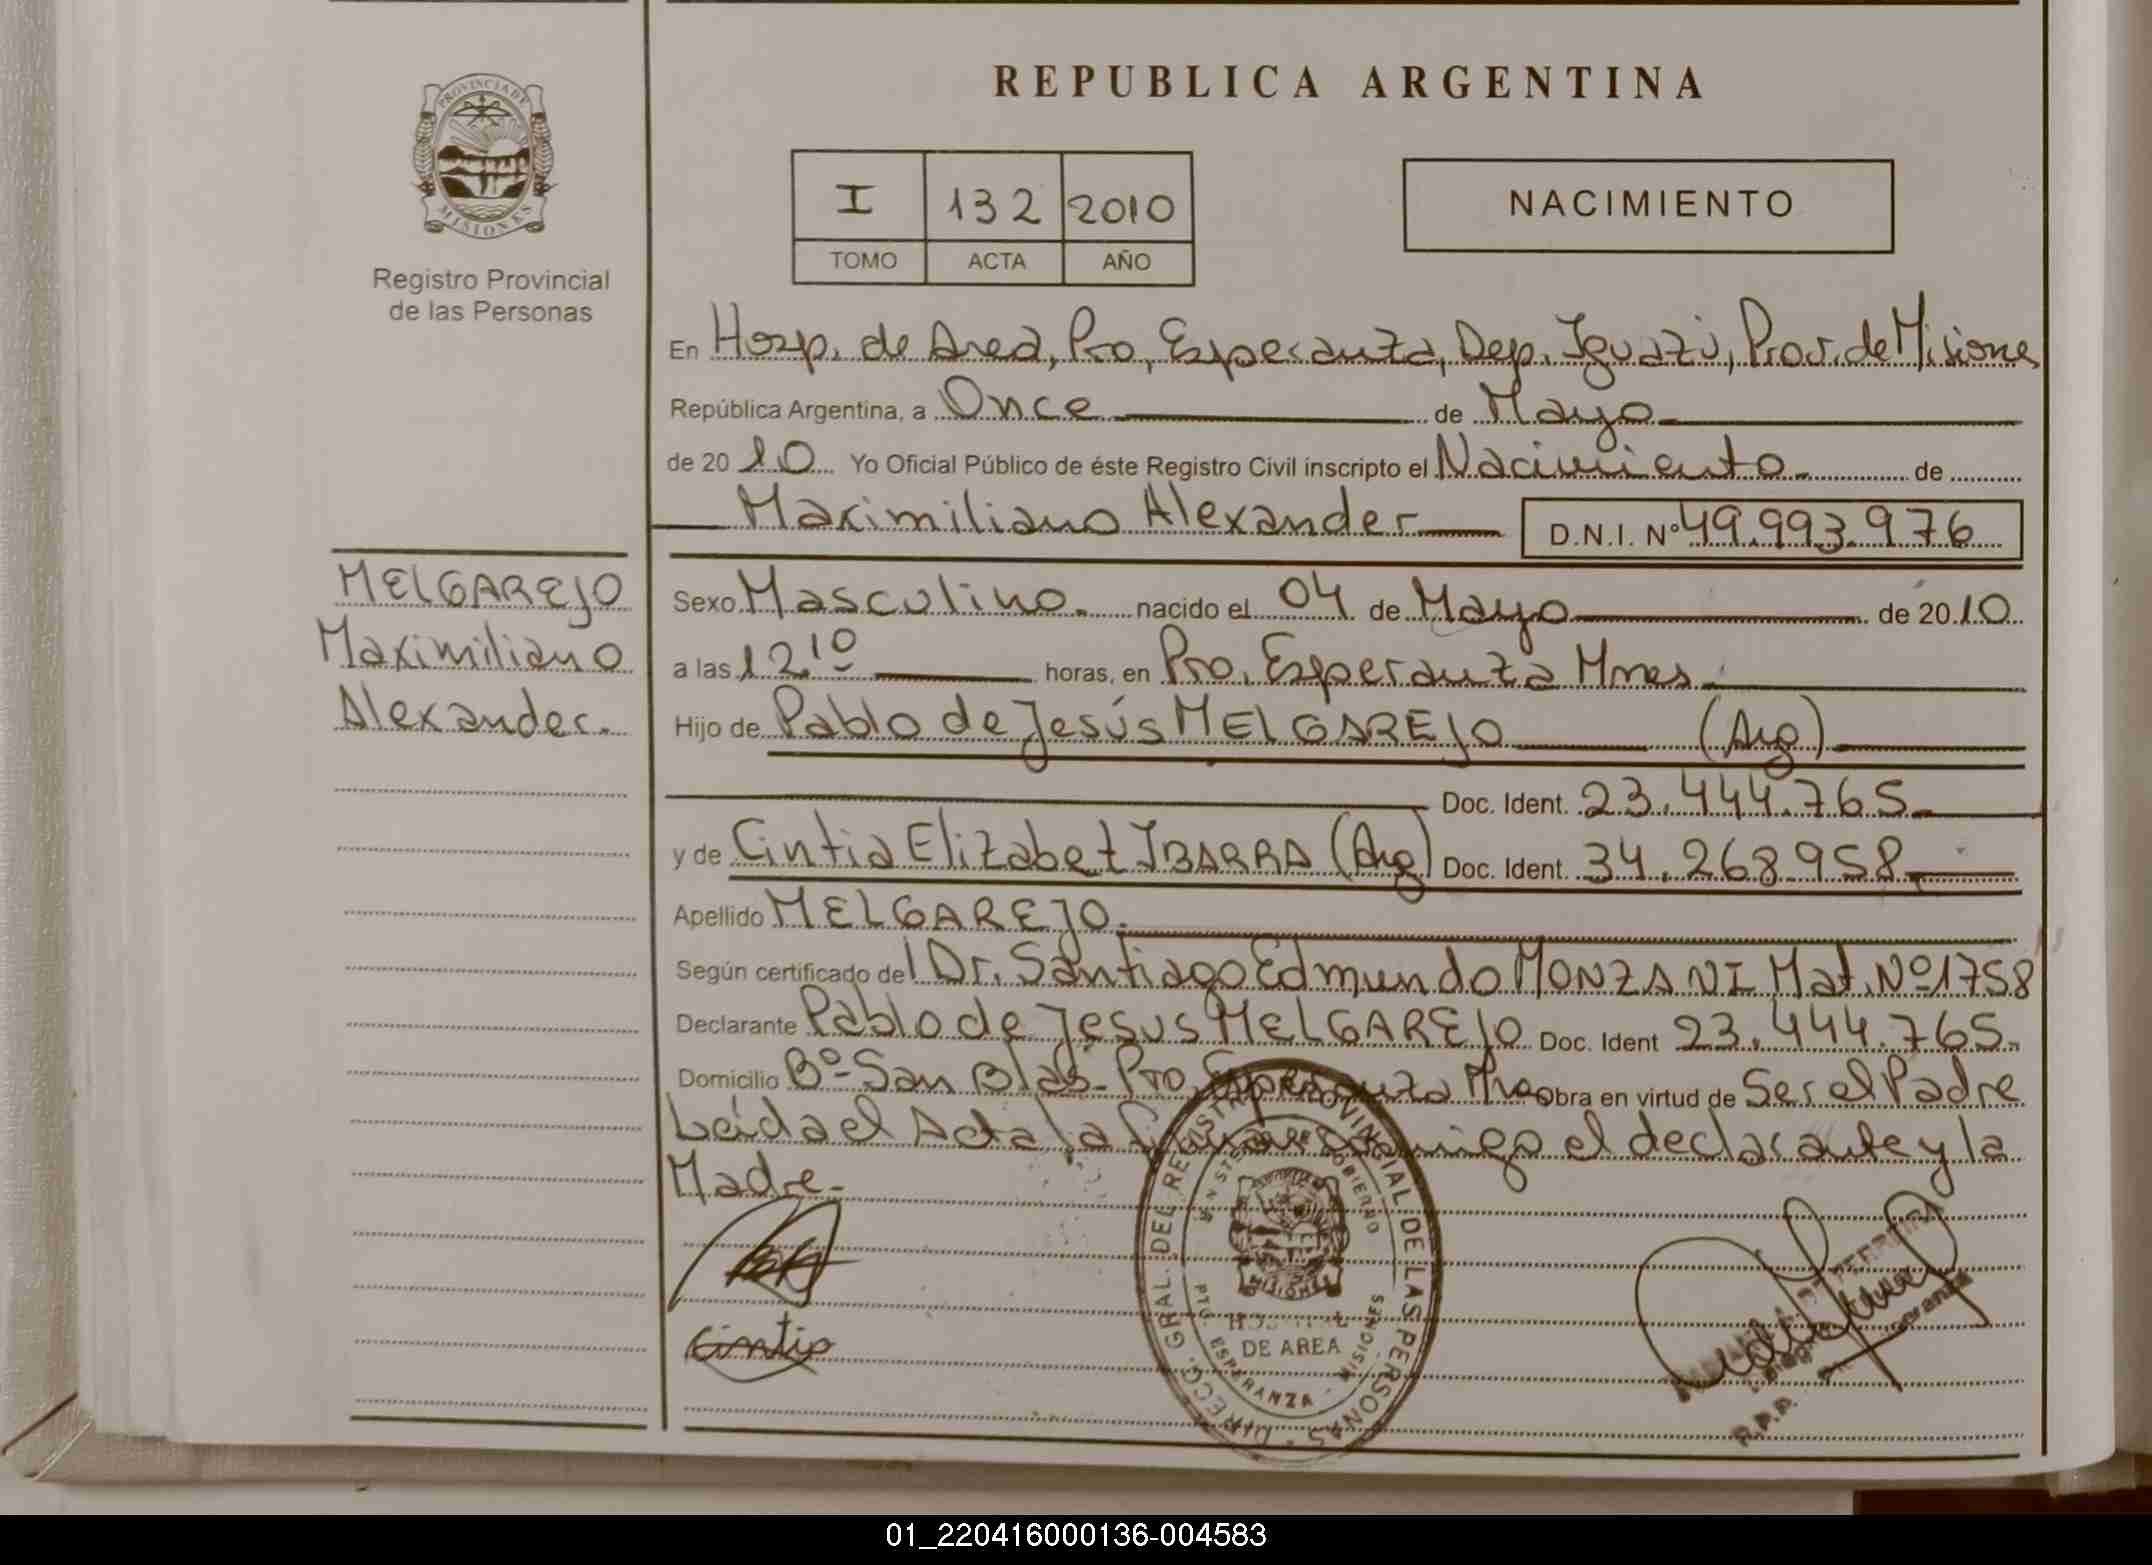 REPUBLICA ARGENTINA
PROVINCIA DE
MISIONES
Registro Provincial
de las Personas
I 132 2010
TOMO ACTA AÑO
NACIMIENTO
En Hosp. de Area, Pto, Esperanza, Dep. Iguazú, Prov. de Misiones
República Argentina, a Once de Mayo
de 20 10 Yo Oficial Público de éste Registro Civil inscripto el Nacimiento de
Maximiliano Alexander D.N.I. Nº 49.993.976
MELGAREJO
Maximiliano
Alexander.
Sexo Masculino. nacido el 04 de Mayo de 2010
a las 12.10 horas, en Pto. Esperanza Mnes.
Hijo de Pablo de Jesús MELGAREJO (Arg)
Doc. Ident. 23.444.765.-
y de Cintia Elizabet IBARRA (Arg) Doc. Ident. 34.268.958.
Apellido MELGAREJO.
Según certificado del Dr. Santiago Edmundo MONZANI Mat. Nº 1758
Declarante Pablo de Jesus MELGAREJO Doc. Ident 23.444.765.
Domicilio Bº San Blas- Pto. Esperanza Obra en virtud de Ser el Padre
Leída el Acta la Firman conmigo el declarante y la
Madre.-
Cintia
GRAL. DEL REGISTRO PROVINCIAL DE LAS PERSONAS
MINISTERIO DE GOBIERNO
MISIONES
HOSPITAL
DE AREA
PTO. ESPERANZA - MISIONES
R.P.P.
01_220416000136-004583